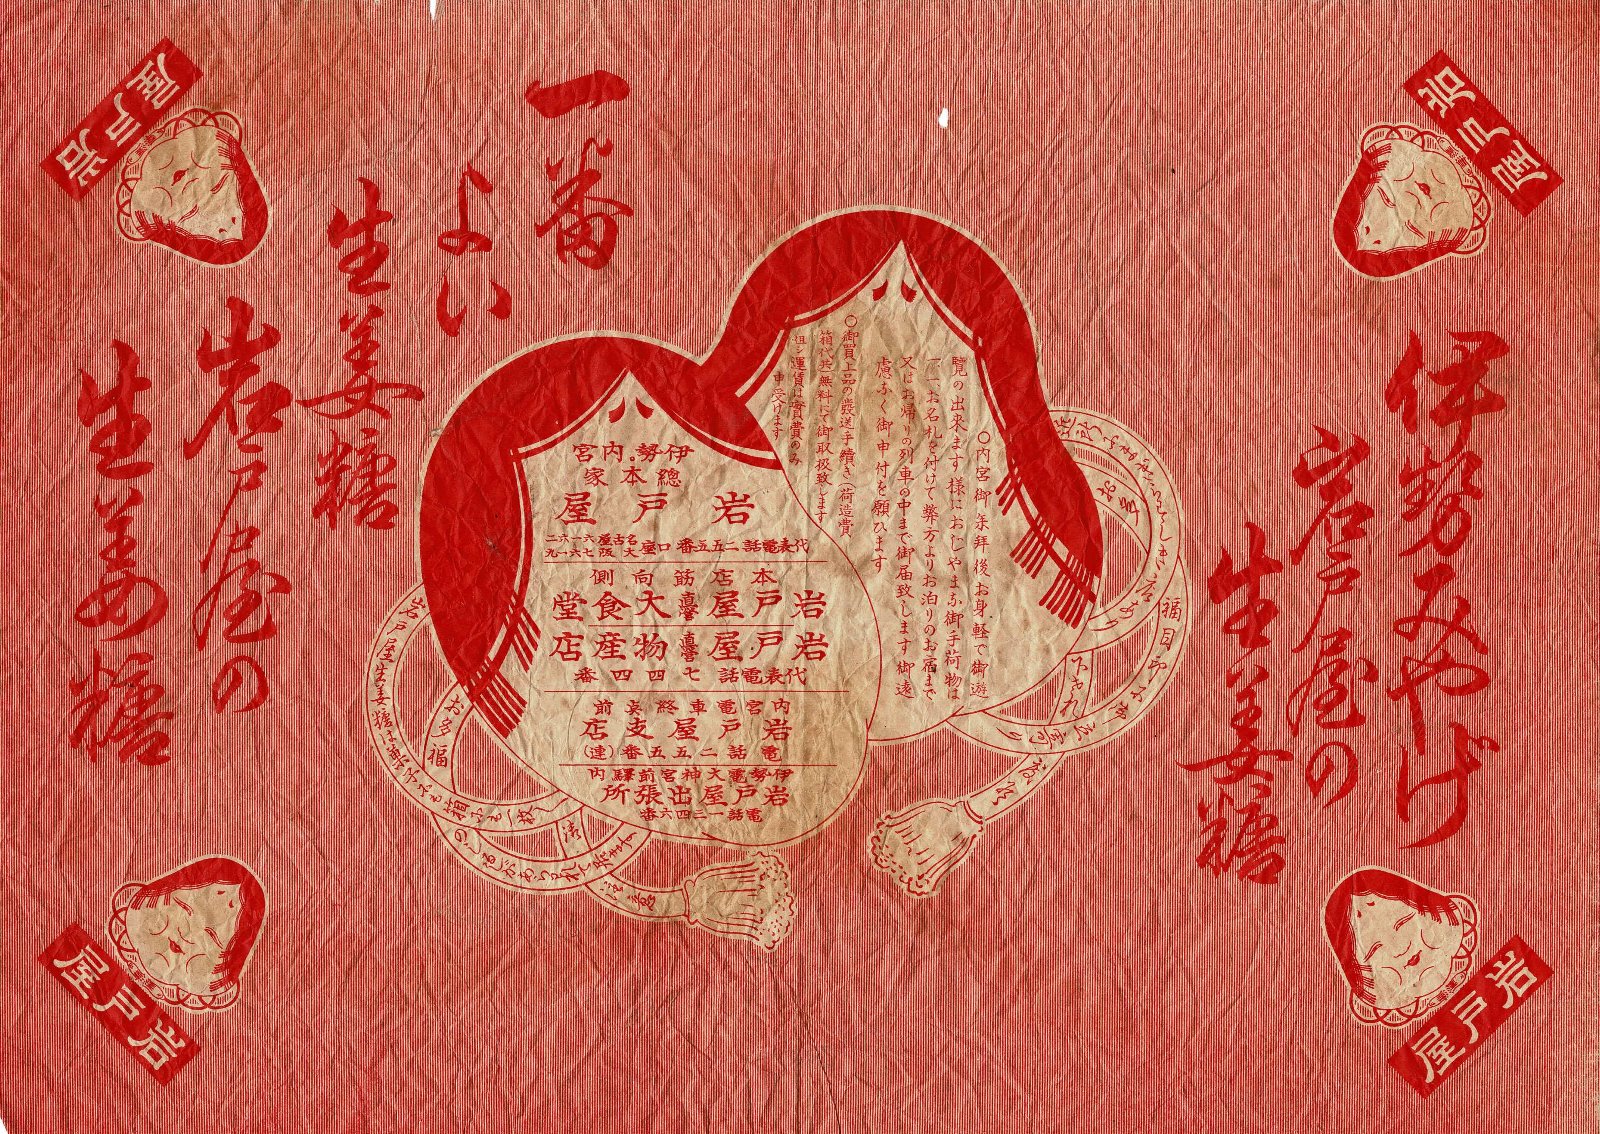 伊勢みやげ
岩戸屋の
生姜糖
一番
よい
生姜糖
岩戸屋の
生姜糖
○内宮御參拝後お身軽で御遊
覽の出來ます様におじやまな御手荷物は
一一、お名札を付けて弊方よりお泊りのお宿まで
又はお帰りの列車の中まで御届致します御遠
慮なく御申付を願ひます
○御買上品の發送手續き(荷造費
箱代共)無料にて御取扱致します
但シ運賃は實費のみ
申受けます
宮内。勢伊
家本總
屋戸岩
代表電話二五五番
側向筋店本
堂食大營直屋戸岩
店産物營直屋戸岩
番四四七話電表代
前眞終車電宮内
店支屋戸岩
(連)番五五二話電
内驛前宮神大電勢伊
所張出屋戸岩
番六四三一話電
お多福
屋戸岩
屋戸岩
屋戸岩
屋戸岩